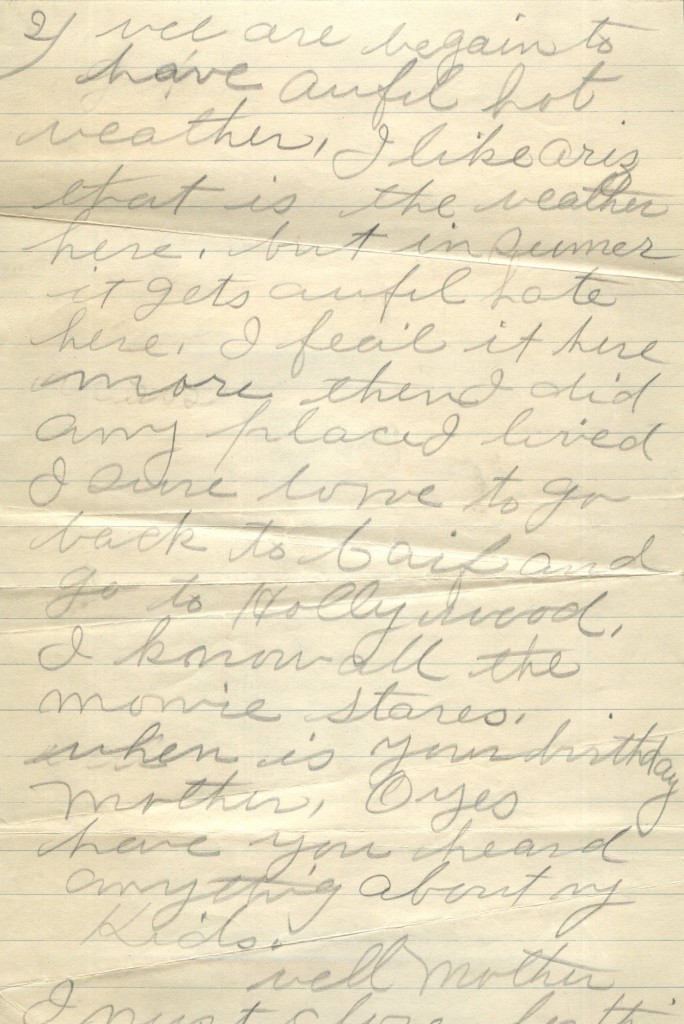 2) wee are begain to
have aufil hot
weather, I like Ariz
that is the weather
here. but in Sumer
it gets aufil hote
here. I feail it here
more then I did
any place I lived
I sure lowe to go
back to Caif and
go to Hollywood.
I know all the
mowie stares.
when is your birthday
mother, O yes
have you heard
anything about my
Kids.
well mother
I must close